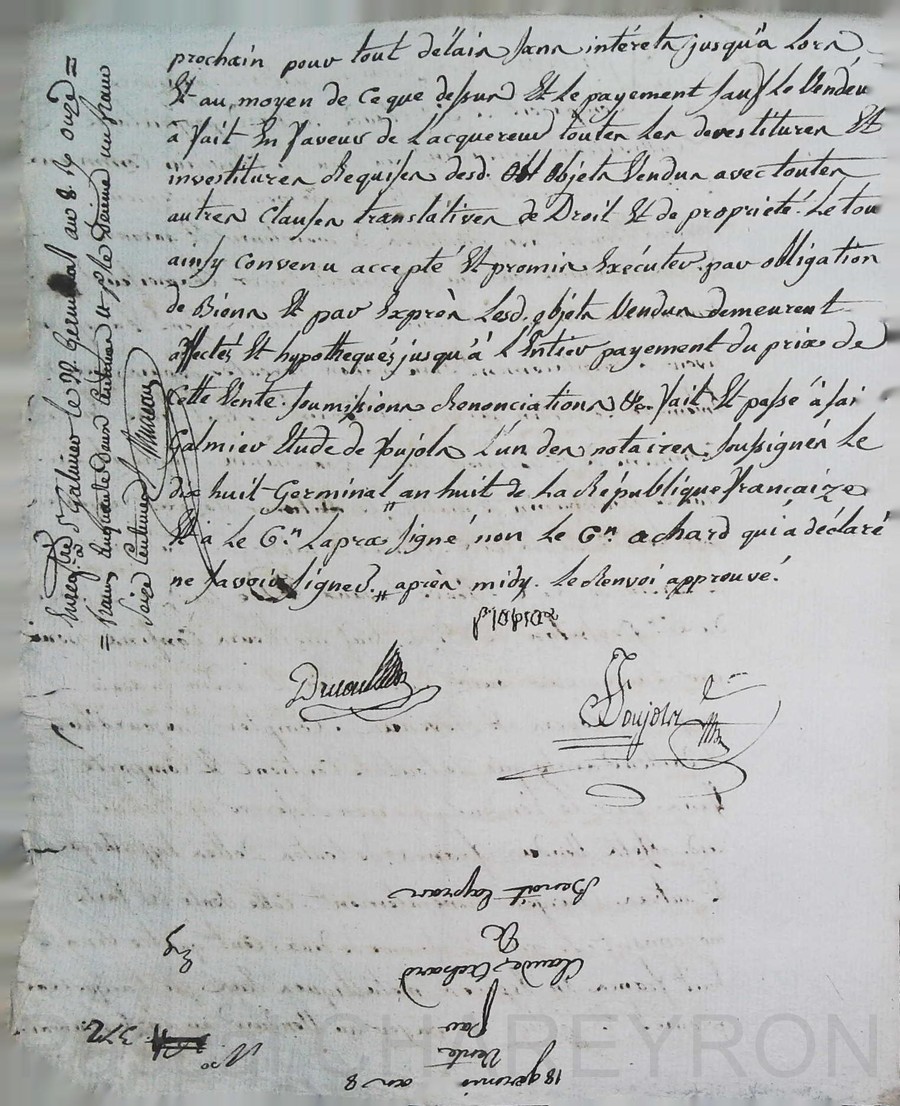 prochain pour tout délais sans intérets jusqu'à Lors
Et au moyen de ce que dessus Et le payement sauf Le Vendeu
à fait En faveur de L'acquereur toutes Les devestitures Et
investitures Requises desd. objets Vendus avec toutes
autres Clauses translatives de Droit Et de proprieté. Le tou
ainsy convenu accepté Et promis Exécuter par obligation
de Biens Et par Exprès Lesd. objets Vendus demeurent
affectés Et hypothequés jusqu'à L'Entier payement du prix de
Cette Vente. soumissions Renonciations &c. fait Et passé à sai
Galmier Etude de Pujols L'un des notaires soussignés Le
dix huit Germinal " an huit de La République francaize
Et a Le Cn. Lapra signé, non Le Cn. achard qui a déclaré
ne savoir signer. " après midy. Le Renvoi approuvé.
Enregtré à St Galmier le 22 Germinal an 8. Rç onze =
= francs cinquante deux Centimes
Seize Centimes
Pujols
Benoit Lapras
&
Claude Achard
par
Vente
18 germinal
an 8
No
372
Eg
ROBERT CHAPEYRON